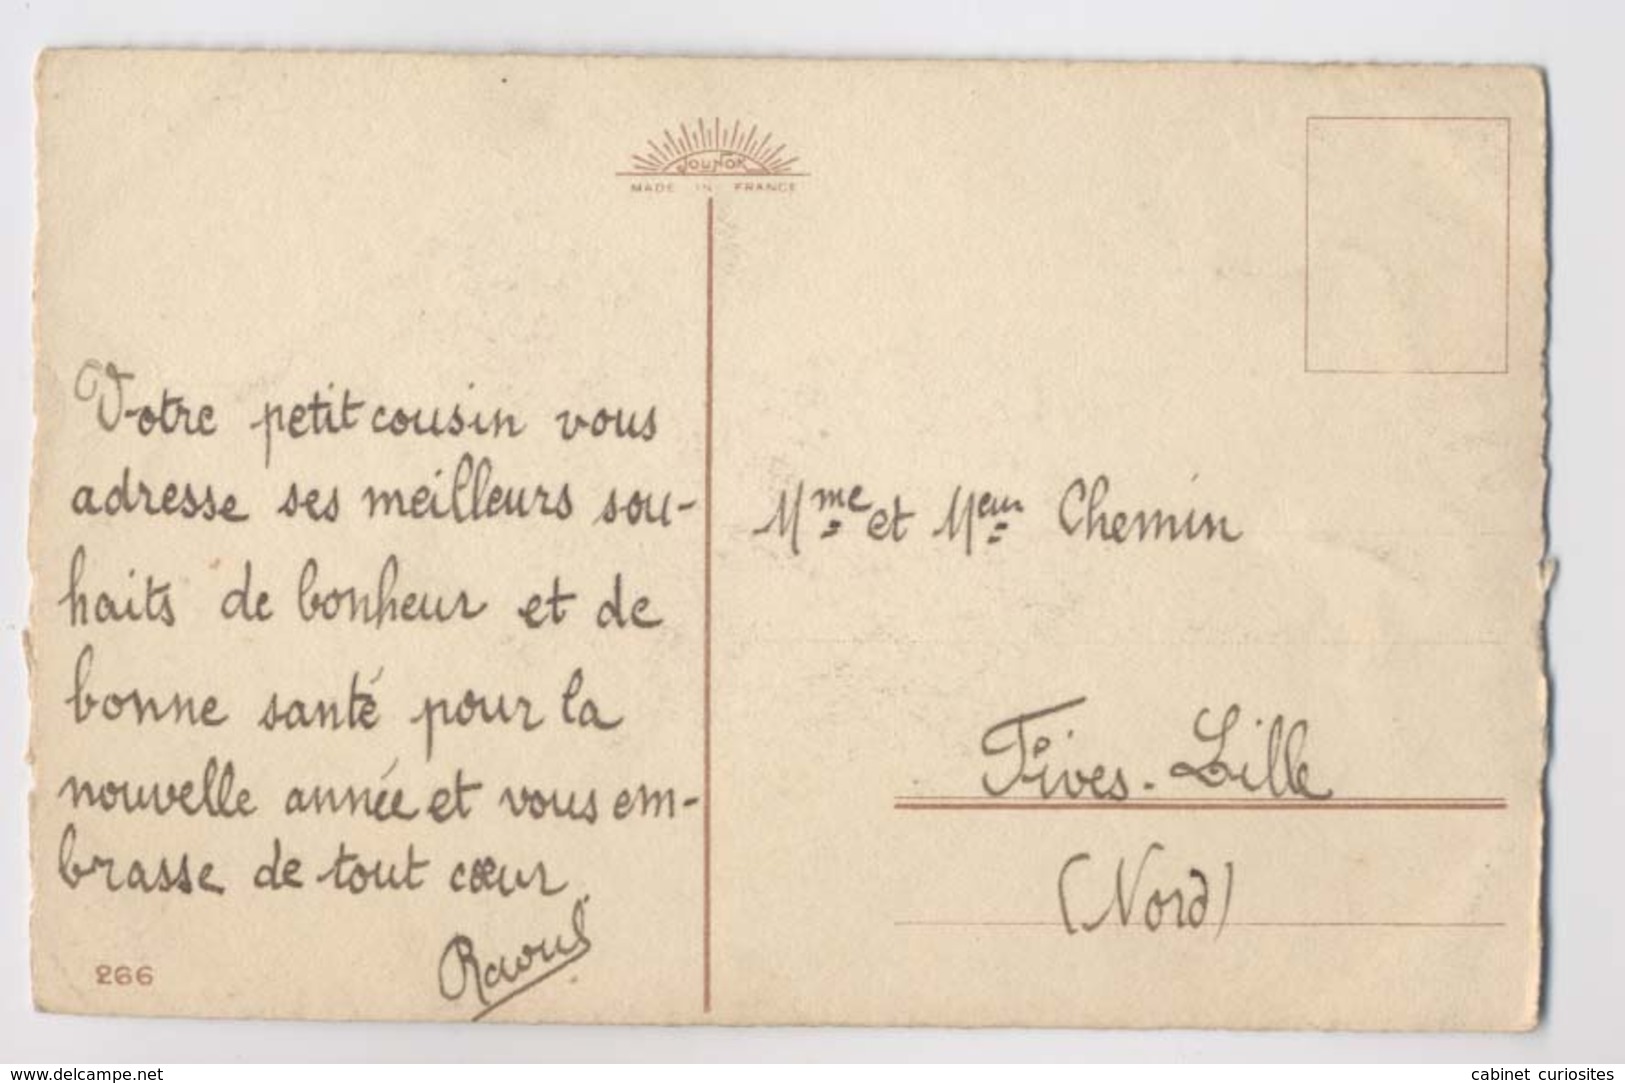 JOUNOK
MADE IN FRANCE
Votre petit cousin vous
adresse ses meilleurs sou-
haits de bonheur et de
bonne santé pour la
nouvelle année et vous em-
brasse de tout cœur
Raoul
266
Mme et Meur Chemin
Fives-Lille
(Nord)
www.delcampe.net
cabinet curiosites